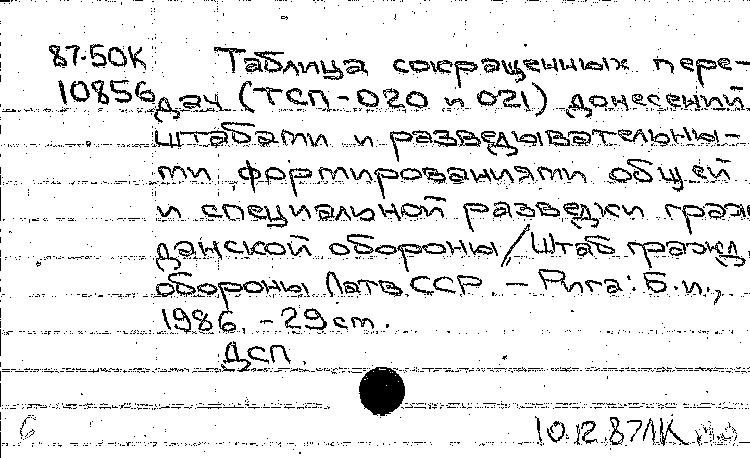 87-50К Таблица сокращенных пере-
10856 дач (ТСП-020 и 021) донесений
штабами и разведывательны-
ми формированиями общей
и специальной разведки граж
данской обороны / Штаб гражд.
обороны Латв. ССР. – Рига: Б.и.,
1986. – 29 ст.
ДСП.
6 10.12.87